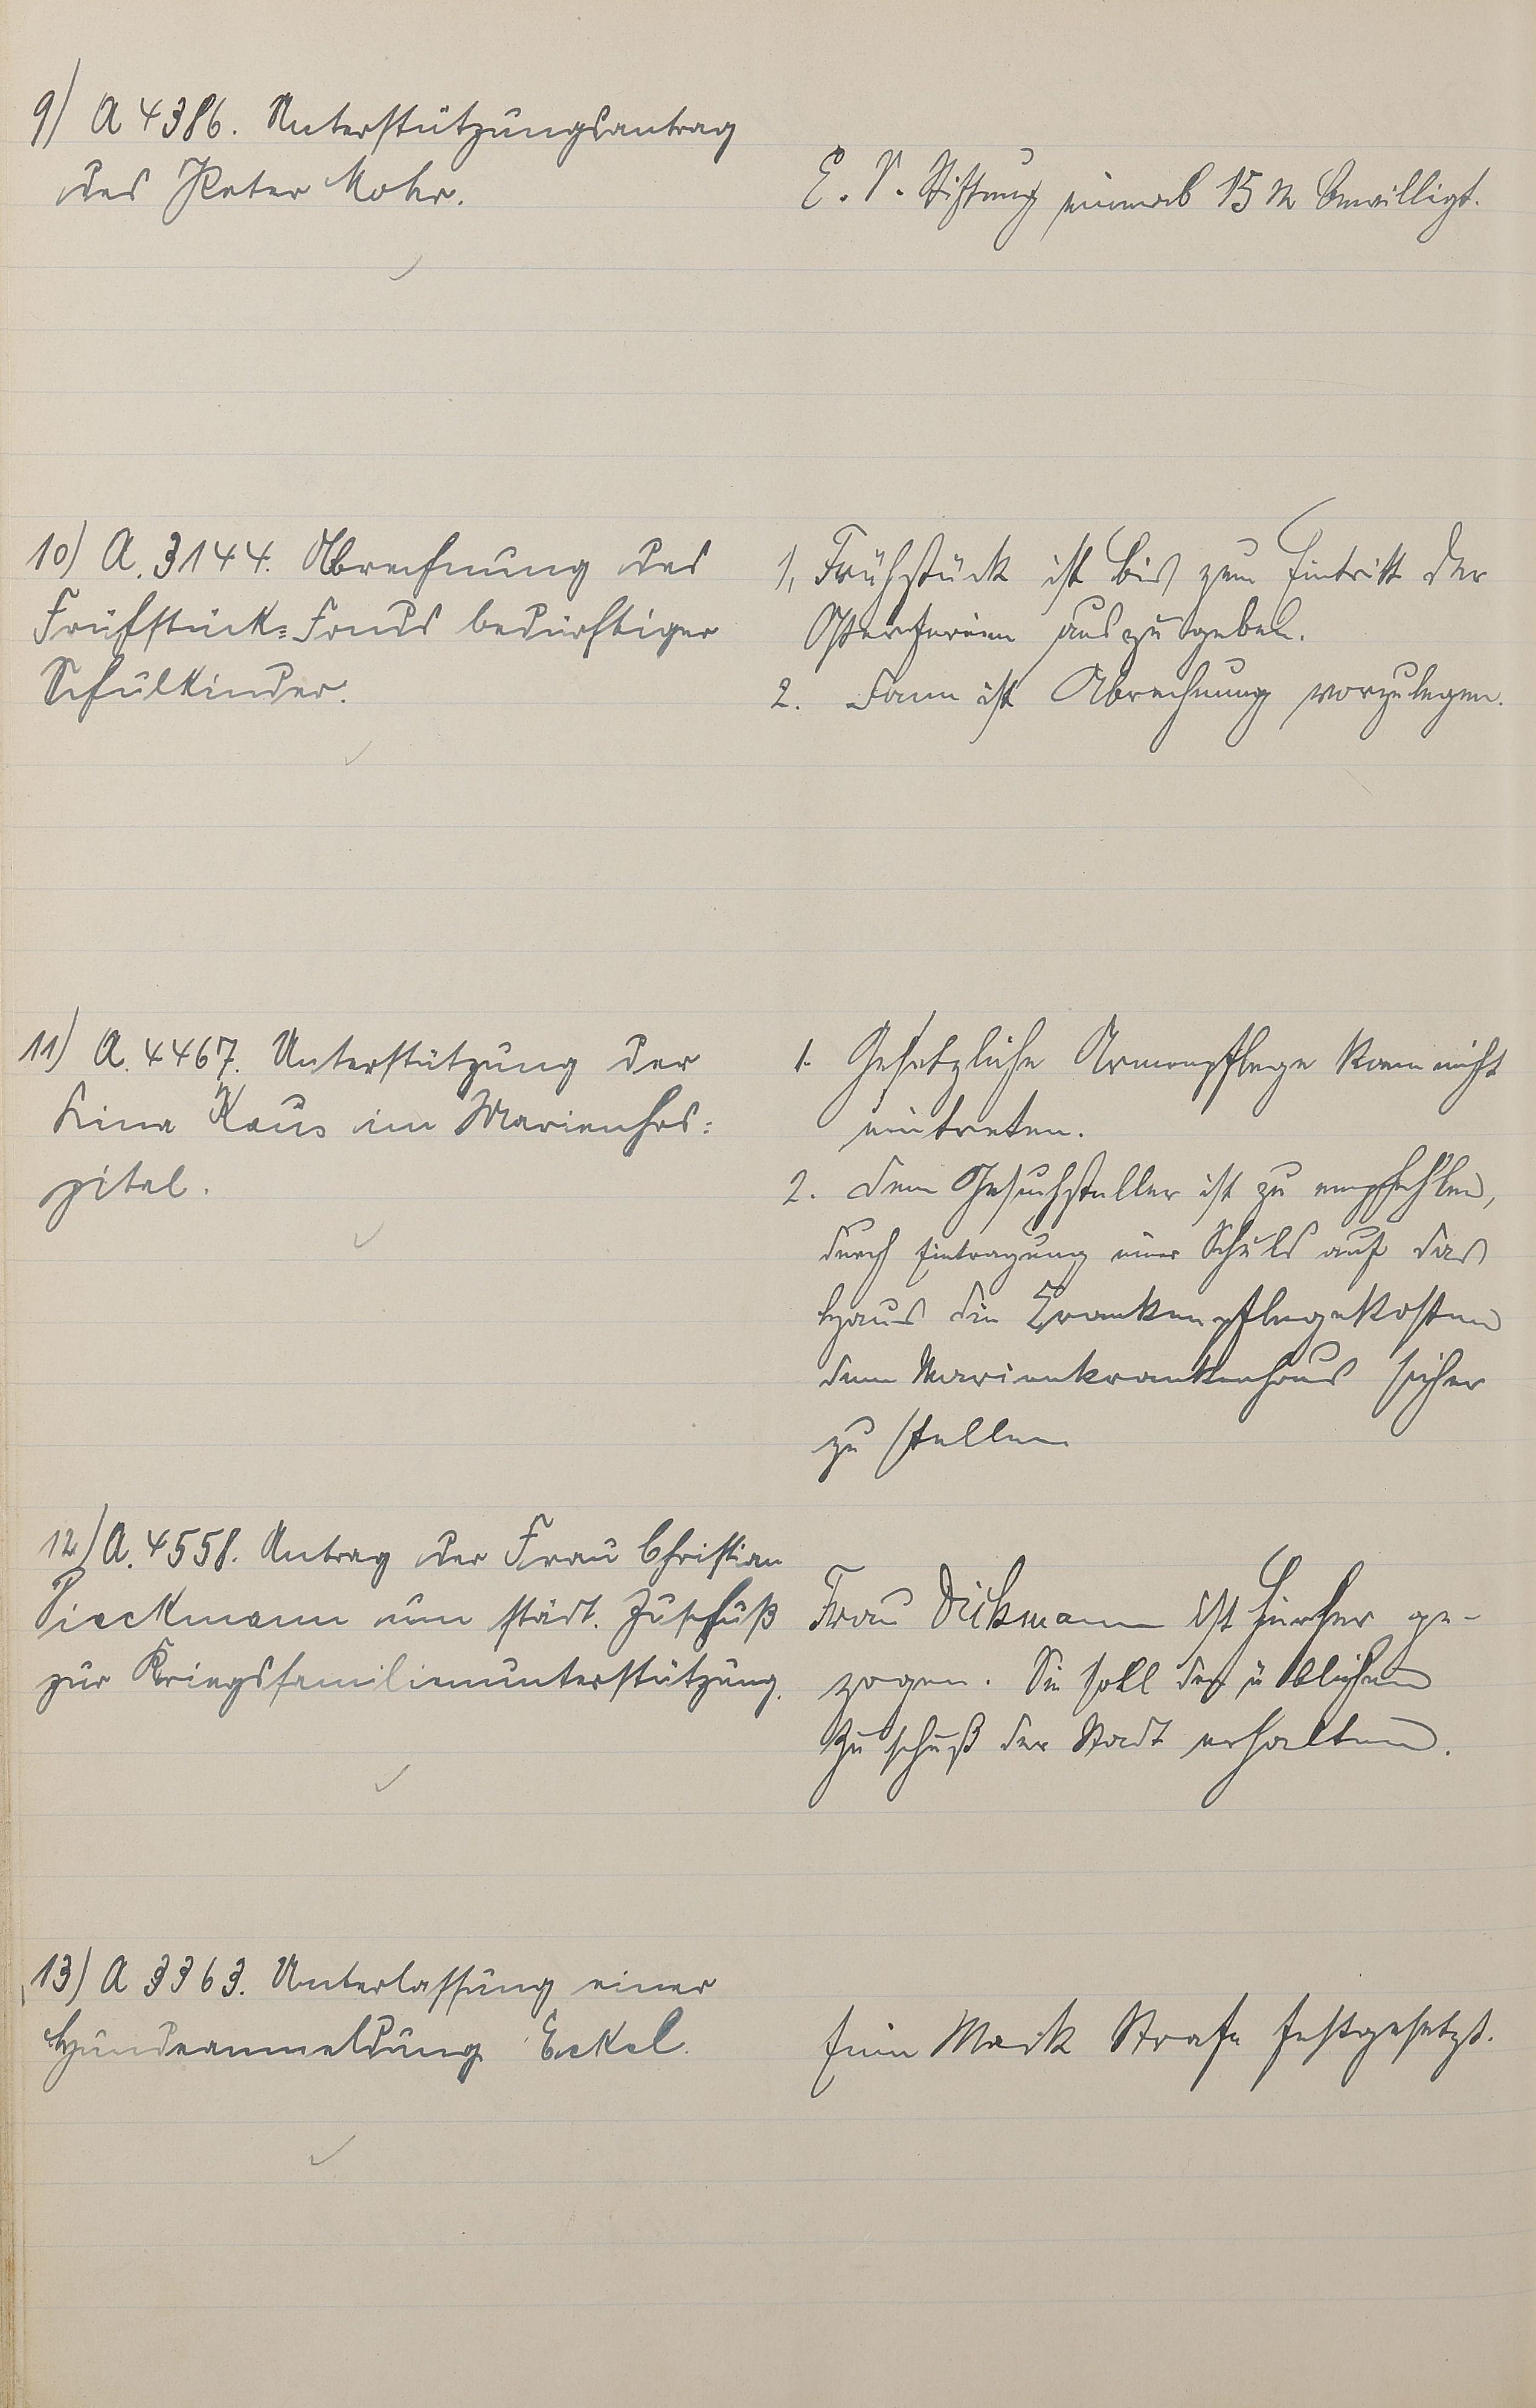 9) A 4386. Unterstützungsantrag
des Peter Mohr.
E. V. Stiftung einmal 15 M bewilligt.
10) A. 3144. Abrechnung des
Frühstück-Fonds bedürftiger
Schulkinder.
1, Frühstück ist bis zum Eintritt der
Osterferien auszugeben.
2. Dann ist Abrechnung vorzulegen.
11) A. 4467. Unterstützung der
Lina Kaus im Marienhos-
pital.
1. Gesetzliche Armenpflege kann nicht
eintreten.
2. Dem Gesuchsteller ist zu empfehlen,
durch Eintragung einer Schuld auf das
Haus die Krankenpflegekosten
dem Marienkrankenhaus sicher
zu stellen
12) A. 4558. Antrag der Frau Christian
Dieckmann um städt. Zuschuß
zur Kriegsfamilienunterstützung.
Frau Dickmann ist hierher ge-
zogen. Sie soll den üblichen
Zuschuß der Stadt erhalten.
13) A 3363. Unterlassung einer
Hundeanmeldung Eckel.
Eine Mark Strafe festgesetzt.